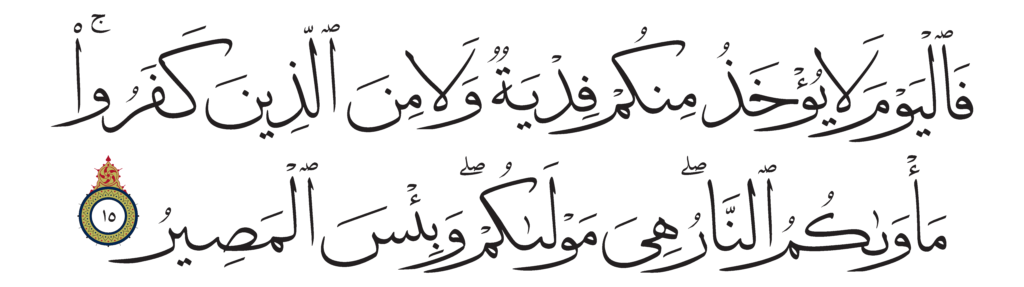 فَٱلْيَوْمَ لَا يُؤْخَذُ مِنكُمْ فِدْيَةٌ وَلَا مِنَ ٱلَّذِينَ كَفَرُوا۟ ۚ
مَأْوَىٰكُمُ ٱلنَّارُ ۖ هِىَ مَوْلَىٰكُمْ ۖ وَبِئْسَ ٱلْمَصِيرُ ١٥